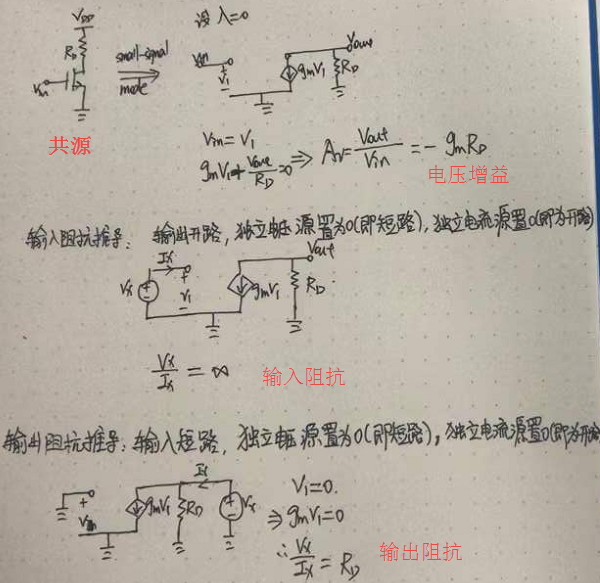 VDD
设λ=0
RD
small-signal
mode
Vin
Vin
V1
gmV1
Vout
RD
共源
Vin=V1
gmV1+Vout/RD=0 ⇒ Av=Vout/Vin=-gmRD
电压增益
输入阻抗推导: 输出开路,独立电压源置为0(即短路),独立电流源置0(即为开路)
Ix
Vx
V1
gmV1
Vout
RD
Vx/Ix=∞
输入阻抗
输出阻抗推导:输入短路,独立电压源置为0(即短路),独立电流源置0(即为开路)
Ix
Vin
gmV1
RD
Vx
V1=0.
⇒gmV1=0
∴Vx/Ix=RD
输出阻抗